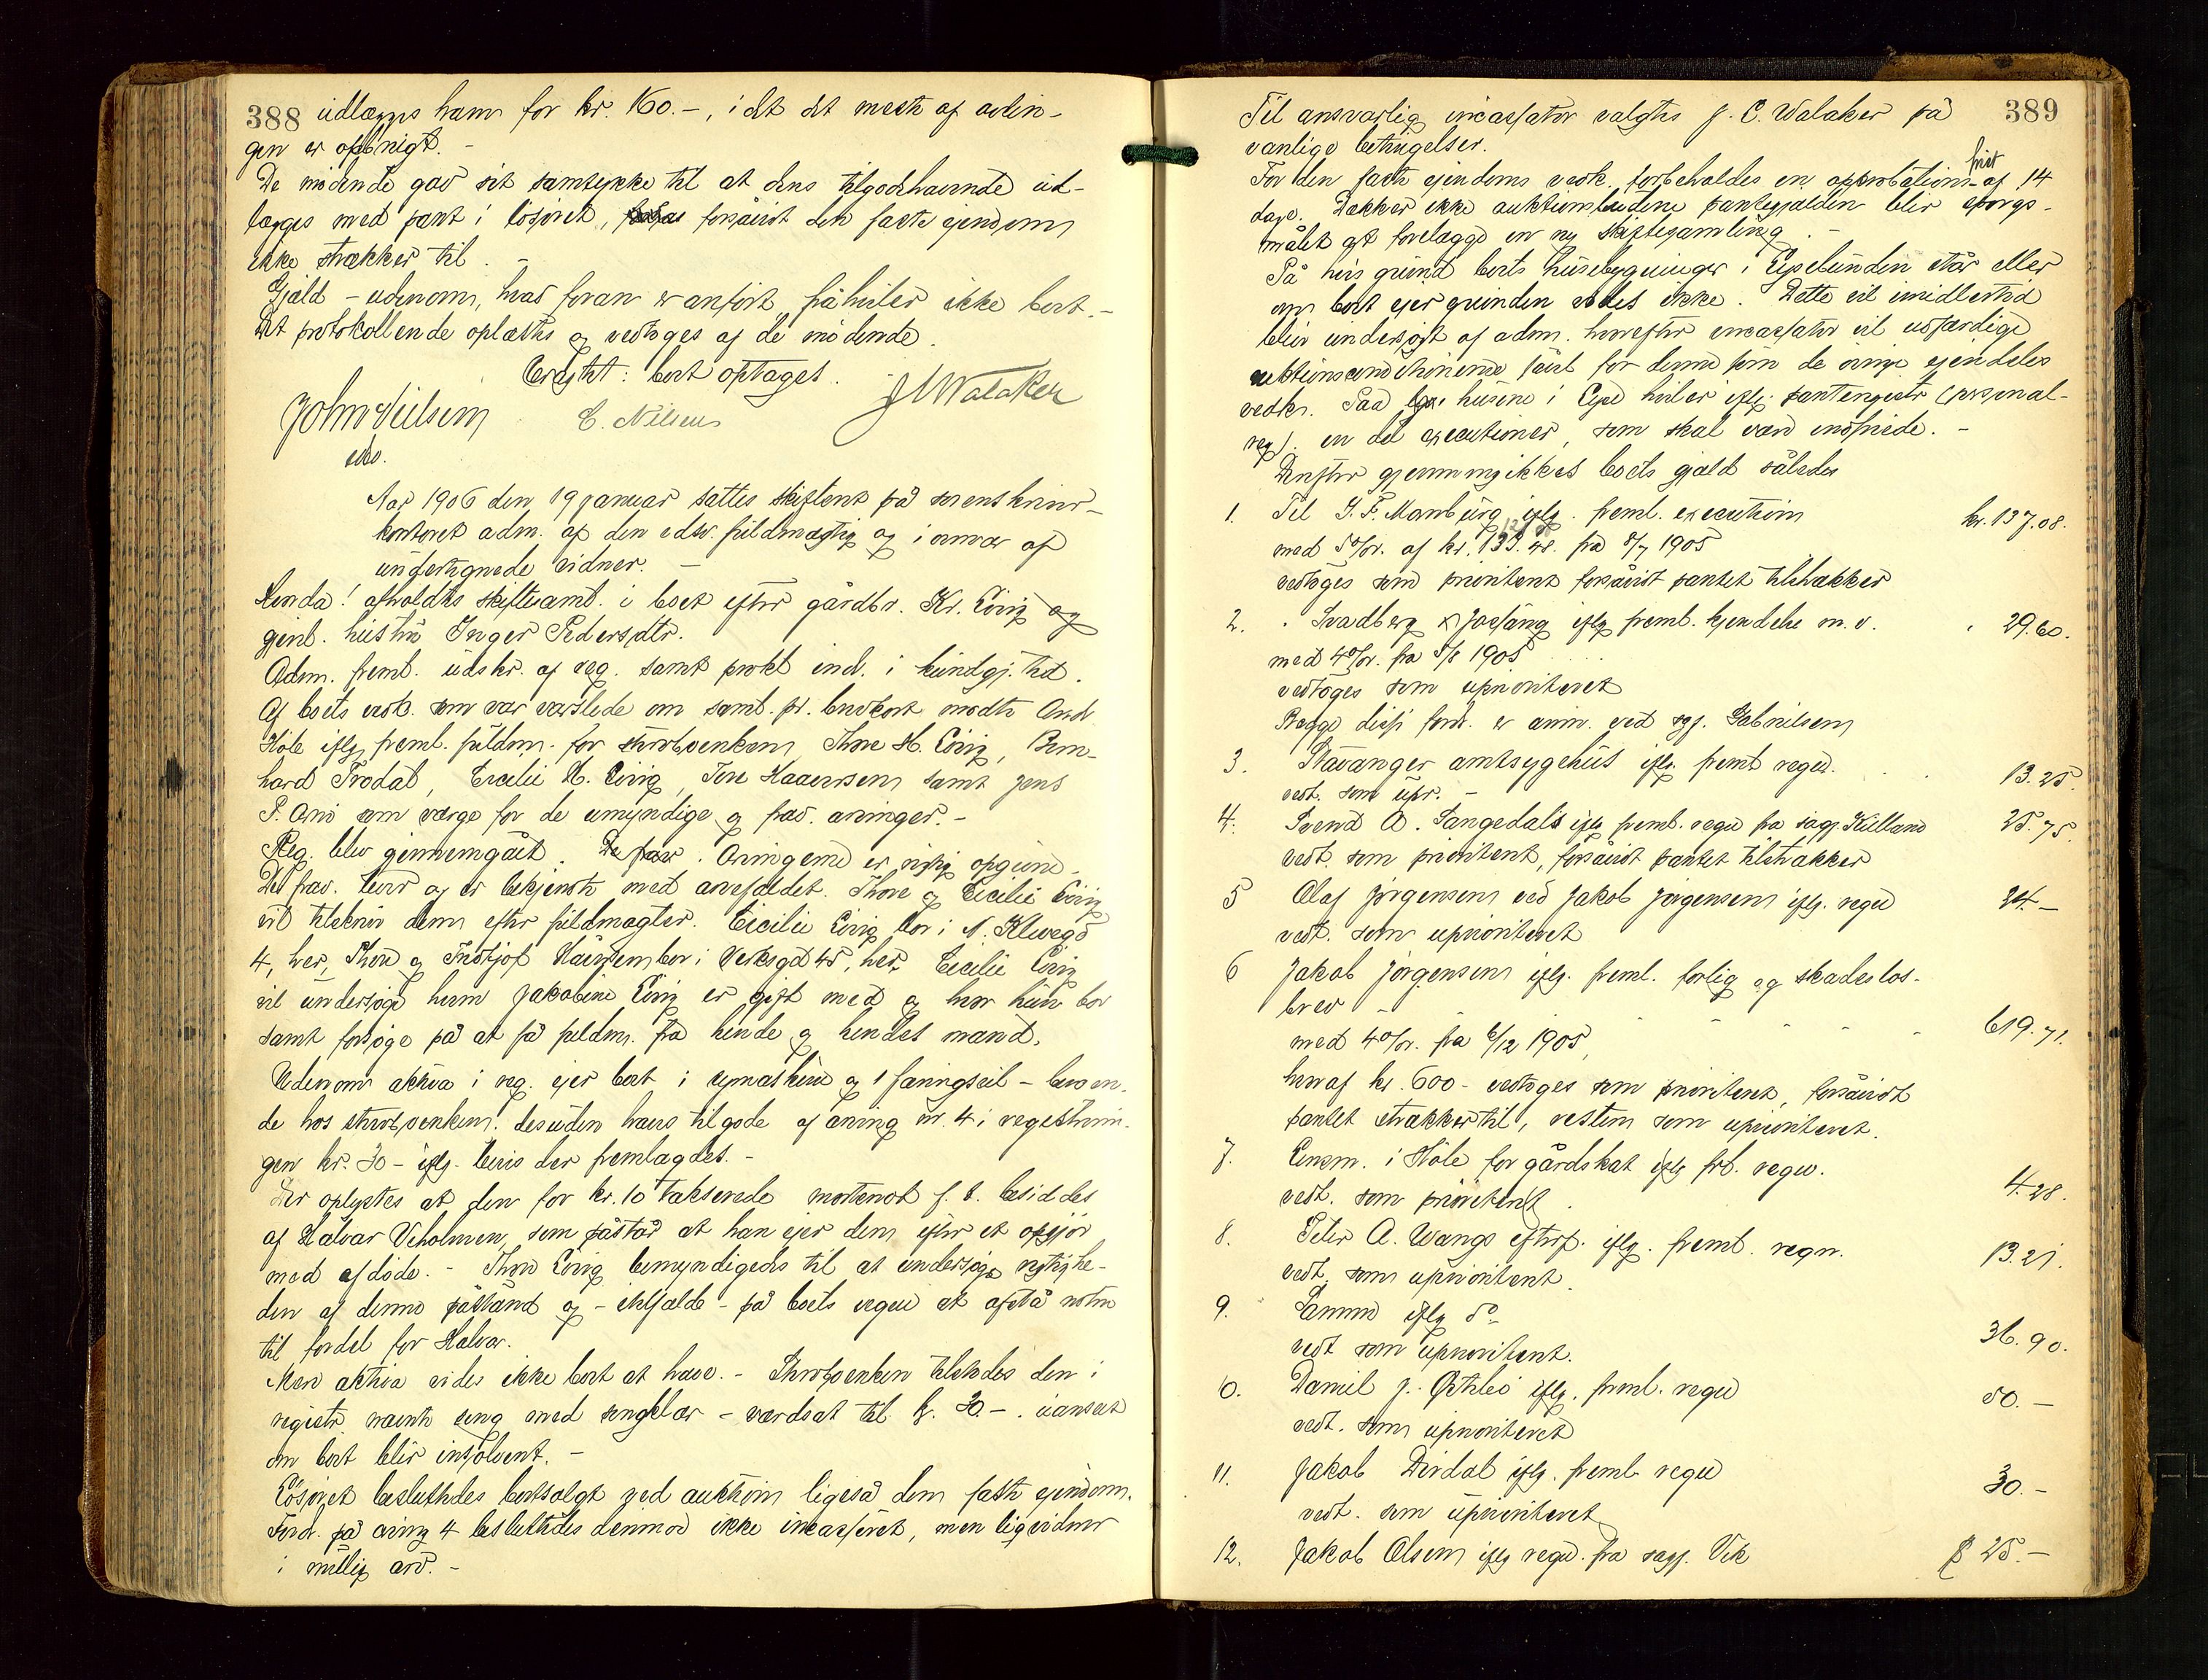 388 udlægges ham for kr. 160.-, idet det meste af avlin-
gen er opbrugt. -
De mødende gav sit samtykke til at dens tilgodehavende ud-
lægges med pant i løsøret, forsåvidt den faste ejendom
ikke strækker til. -
Gjæld - udenom, hvad foran er anført påhviler ikke boet. -
Det protokollende oplæstes og vedtoges af de mødende.
Eragtet: boet optages.
John Neilsen E. Nilsen J M Walaker
edsv.
Aar 1906 den 19 januar sattes skifteret på sorenskriver-
kontoret adm. af den edsv. fuldmægtig og i nærvær af
undertegnede vidner. -
Hvorda! afholdtes skiftesaml. i boet efter gårdbr. Kr. Eivig og
gjenl. hustru Inger Pedersdtr.
Adm. freml. udskr. af reg. samt prokl. ind. i kundgj. tid.
Af boets vedk. som var varslede om saml. pr. brevkort mødte And.
Høle iflg. freml. fuldm. for stervboenken, Thore H. Eivig, Bern-
hard Frodal, Cecilie H. Eivig, Tore Haaversen samt Jens
P. som værge for de umyndige og frav. arvinger. -
Reg. blev gjennemgået. Arvingerne er rigtig opgivne.
De frav. lever og er bekjendte med arvefaldet. Thore og Cecilie Eivig
vil tilskrive dem efter fuldmagter. Cecilie Eivig bor i N. Klevegd
4, her, Thore og Fridtjof bor i Verksgd 45, her. Cecilie Eivig
vil undersøge hvem Jakobine Eivig er gift med og hvor hun bor
samt forsøge på at få fuldm. fra hende og hendes mand.
Udenom aktiva i reg. ejer boet 1 symaskine og 1 færingseil - beroen-
de hos stervboenken! desuden haves tilgode af arving nr. 4 i registrerin-
gen kr. 30 - iflg. bevis der fremlagdes. -
Der oplystes at den for kr. 10 takserede mortenot f. t. besiddes
af Halvar Viholmen, som påstår at han ejer den efter et opgjør
med afdøde. - Thore Eivig bemyndigedes til at undersøge rigtighe-
den af denne påstand og - ihvfald - på boets vegne at afstå noten
til fordel for Halvar.
Mere aktiva vides ikke boet at have. - Stervboenken tilstedes den i
registr. nævnte seng med sengklær - værdsat til kr. 30.- uanseet
om boet blir insolvent. -
Løsøret besluttedes bortsolgt ved auktion ligeså den faste ejendom.
Fordr. på arving 4 besluttedes derimod ikke incasseret, men ligvidrer
i mulig arv. -
389
Til ansvarlig incassator valgtes J. C. Walaker på
vanlige betingelser.
For den faste ejendoms vedk. forbeholdes en approbations frist af 14
dage. Dækker ikke auktionsbudene pantegjælden blir spørgs-
målet at forelægge en ny skiftesamling. -
På hvis grund boets husebygninger i Espebunden står eller
om boet ejer grunden vides ikke. Dette vil imidlertid
blive undersøgt af adm. hvorefter incassator vil udfærdige
auktionsanordningerne såvel for denne som de øvrige ejendeles
vedk. Paa husene i Espe hviler iflg. panteregistr (personal-
reg). en del executioner, som skal være indfriede. -
Derefter gjennemgikkes boets gjæld således
1. Til G. F. Manburg iflg. freml. execution kr. 137.08.
med 5 o/o r. af kr. 133.48. fra 8/7 1905
vedtoges som prioritert forsåvidt pantet tilstrækker
2. " Svadberg & Jaasang iflg freml. kjendelse m. v. " 29.60.
med 4 o/o r. fra 5/8 1905
vedtoges som uprioriteret
Begge disse fordr. er anm. ved sagf. Gabrielsen
3. Stavanger amtsygehus iflg. freml. regn. 13.25
vedt. som upr. -
4. Svend A. Sangedals iflg freml. regn fra sagf. Kielland 25.75
vedt. som prioritert, forsåvidt pantet tilstrækker
5 Olaf Jørgensen ved Jakob Jørgensen iflg. regn 24.-
vedt. som uprioriteret
6 Jakob Jørgensen iflg. freml. forlig og skadeslos-
brev - - - - - - 619.71.
med 4 o/o r. fra 6/12 1905
hvoraf kr. 600 - vedtoges som prioritert, forsåvidt
pantet strækker til, resten som uprioriteret.
7. Lensm. i Høle for gårdskat iflg frl. regn. 4.28.
vedt. som prioritert.
8. Peter A. Wangs efterf. iflg. freml. regn. 13.21.
vedt. som uprioritert.
9. Samme iflg do 36.90.
vedt som uprioritert.
10. Daniel J. iflg. freml. regn 50.-
vedt. som uprioriteret
11. Jakob Dirdal iflg. freml regn 30.-
vedt. som uprioriteret
12. Jakob Olsen iflg regn. fra sagf. Vik 25.-